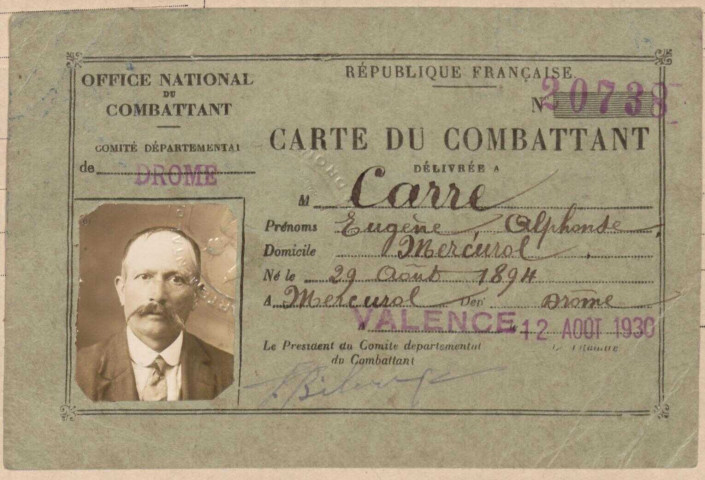 OFFICE NATIONAL
DU
COMBATTANT
COMITÉ DÉPARTEMENTAL
de DROME
RÉPUBLIQUE FRANÇAISE
N° 20738
CARTE DU COMBATTANT
DÉLIVRÉE A
M Carre
Prénoms Eugène, Alphonse
Domicile Mercurol
Né le 29 Août 1894
A Mercurol Dept Drôme
VALENCE 12 AOUT 1930
Le President du Comite departemental
du Combattant